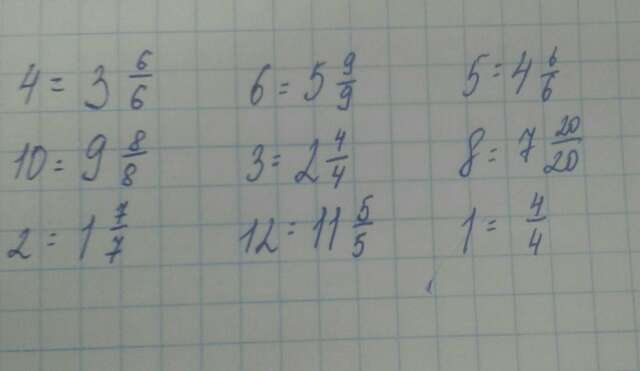 4 = 3 6/6 6 = 5 9/9 5 = 4 6/6
10 = 9 8/8 3 = 2 4/4 8 = 7 20/20
2 = 1 7/7 12 = 11 5/5 1 = 4/4